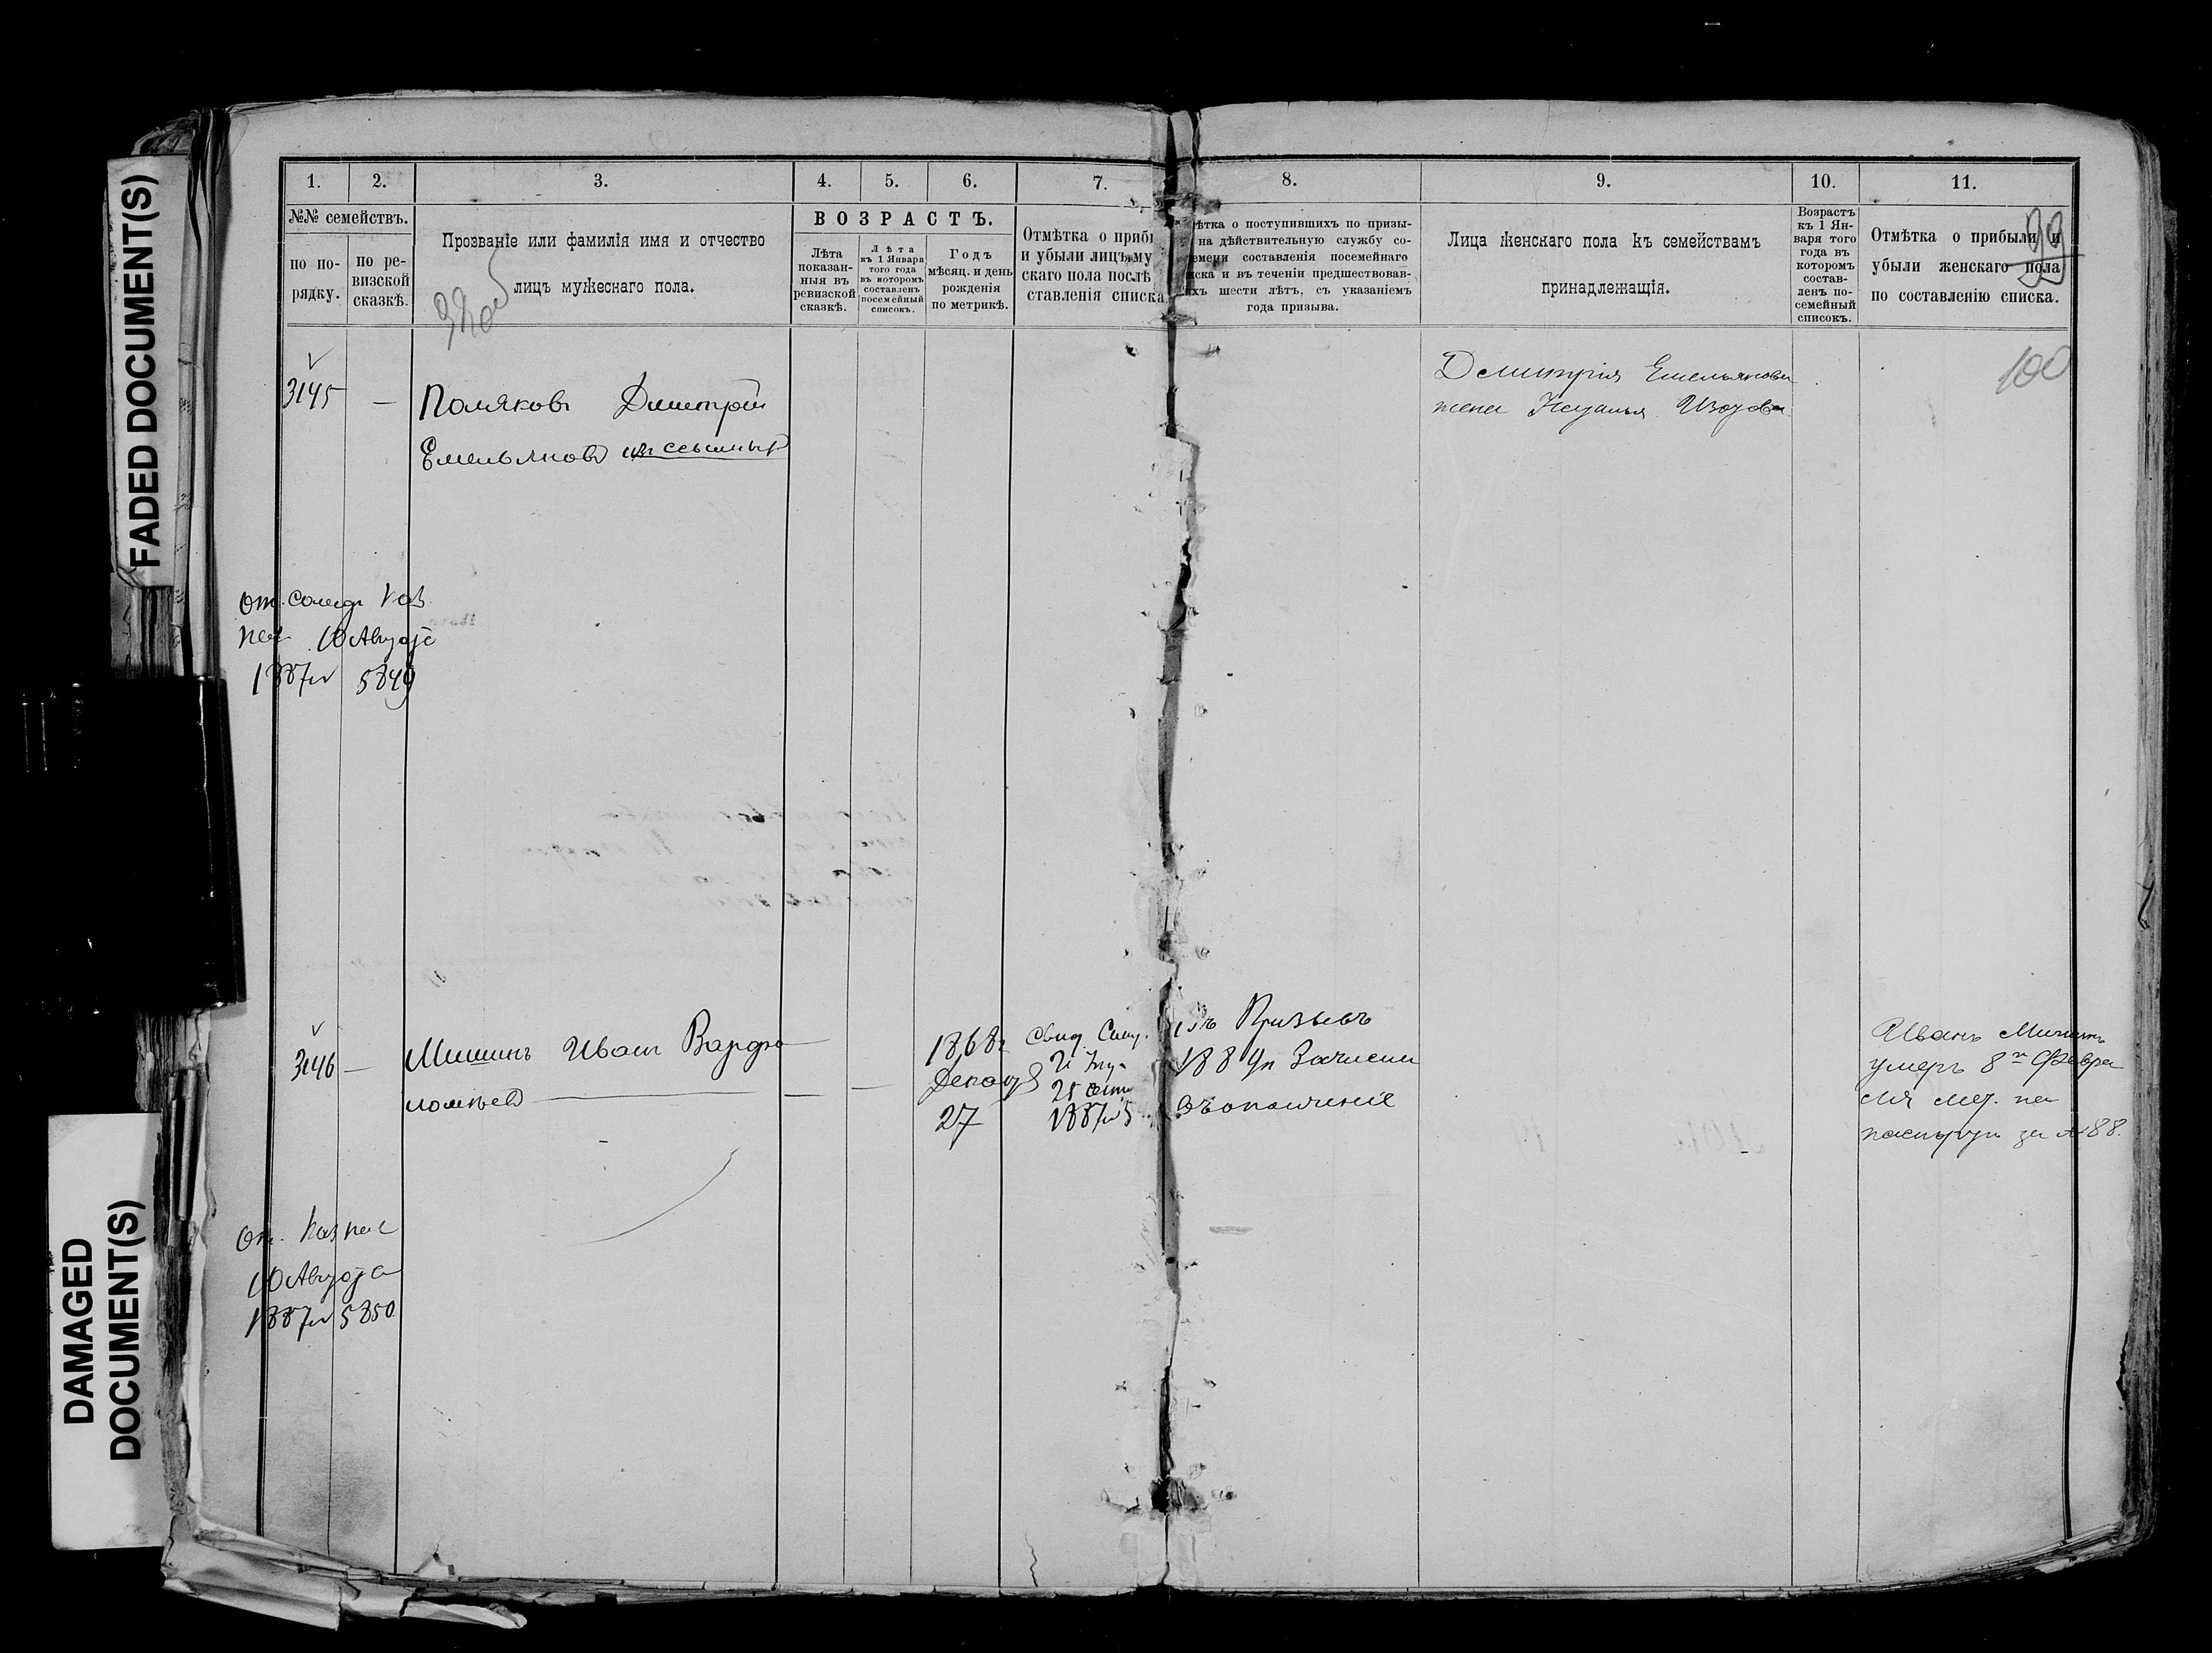 FADED DOCUMENT(S)
DAMAGED
DOCUMENT(S)
1.
2.
3.
4.
5.
6.
7.
№№ семействъ.
по по-
рядку.
по ре-
визской
сказкѣ.
Прозваніе или фамилія имя и отчество
лицъ мужескаго пола.
ВОЗРАСТЪ.
Лѣта
показан-
ныя въ
ревизской
сказкѣ.
Лѣта
къ 1 Января
того года
въ которомъ
составленъ
посемейный
списокъ.
Годъ
мѣсяц. и день
рожденія
по метрикѣ.
Отмѣтка о приб
и убыли лицъ му
скаго пола послѣ
ставленія списка
8.
9.
10.
11.
ѣтка о поступившихъ по призы-
на дѣйствительную службу со-
емени составленія посемейнаго
иска и въ теченіи предшествовав-
ихъ шести лѣтъ, съ указаніемъ
года призыва.
Лица женскаго пола къ семействамъ
принадлежащія.
Возрастъ
къ 1 Ян-
варя того
года въ
которомъ
состав-
ленъ по-
семейный
списокъ.
Отмѣтка о прибыли и
убыли женскаго пола
по составленію списка.
99
100
3145 —
Поляковъ Дмитрій
Емельяновъ изъ ссыльныхъ
Дмитрія Емельянова
жена Наталья Изотова
От.
10 Августа
1887 5849
3146 —
Мишинъ Иванъ Варфо
ломѣевъ
1868г
Декабр
27
Свид. Сам.
1887
Призывъ
1889г Зачисленъ
въ ополченіе
Иванъ Мишинъ
умеръ 8го Февра
ля
паспорту за № 88.
От. Каз пал
10 Августа
1887 5850